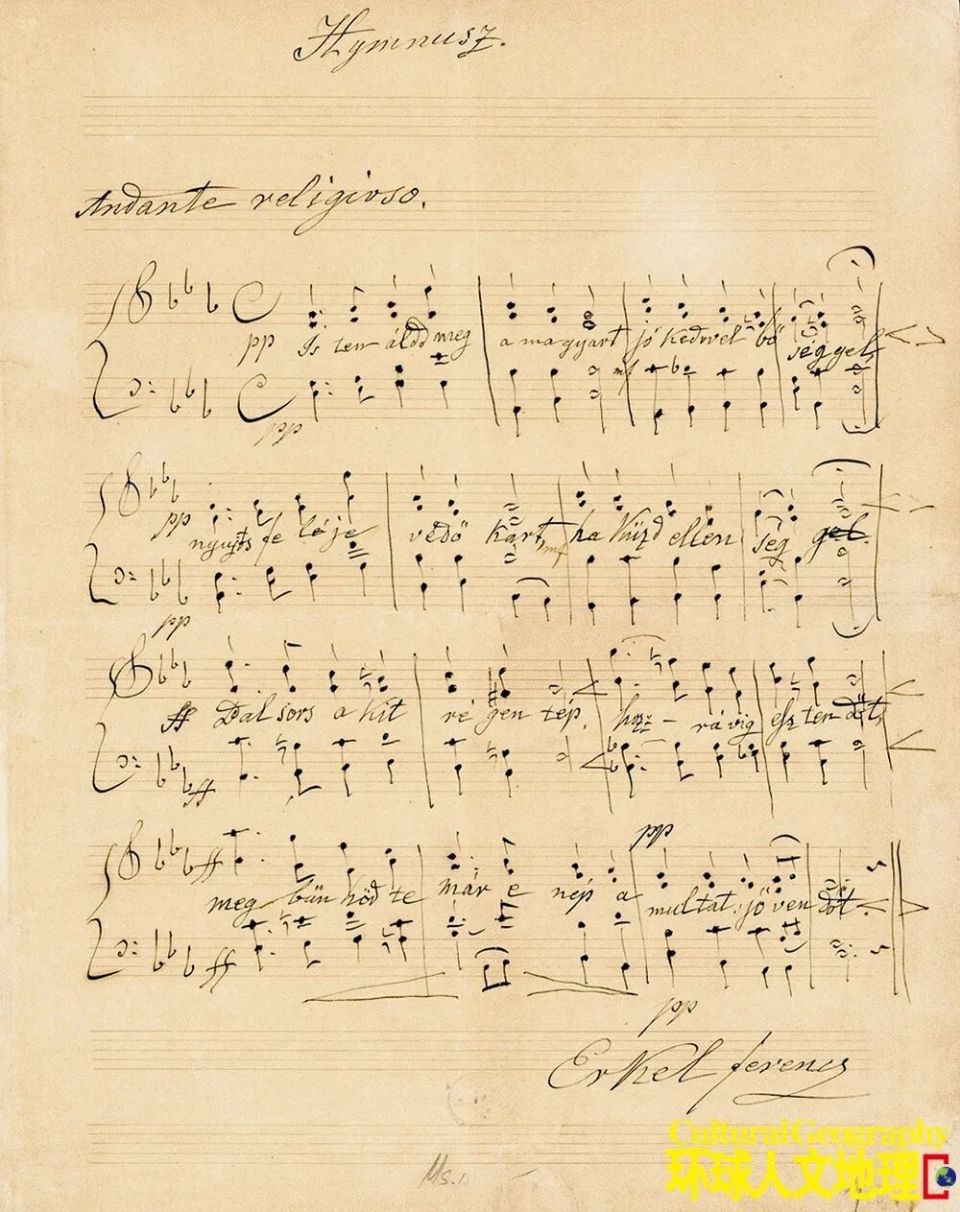 Hymnusz.
Andante religioso.
pp Is ten áldd meg a magyart jó kedvvel bő séggel,
mf
pp
pp nyujts fe léje védő kart mf ha küzd ellen ség gel.
pp
ff Bal sors a kit ré gen tép, hozz - rá víg esz ten dőt,
ff
pp
ff meg bűn hőd te már e nép a multat s jöven dőt.
ff
pp
Erkel ferencz
Ms. 1
Cultural Geography
环球人文地理